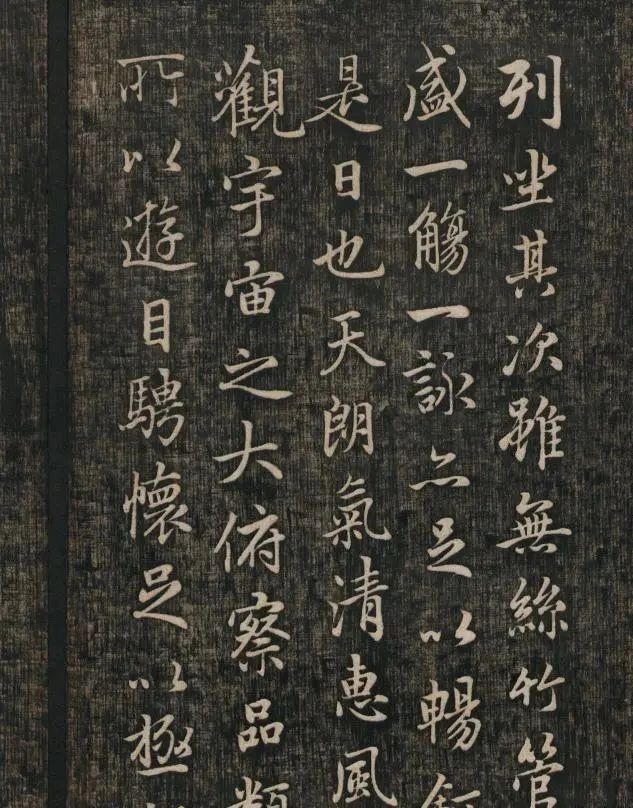 列坐其次雖無絲竹管
盛一觴一詠亦足以暢叙
是日也天朗氣清惠風
觀宇宙之大俯察品類
所以遊目騁懷足以極